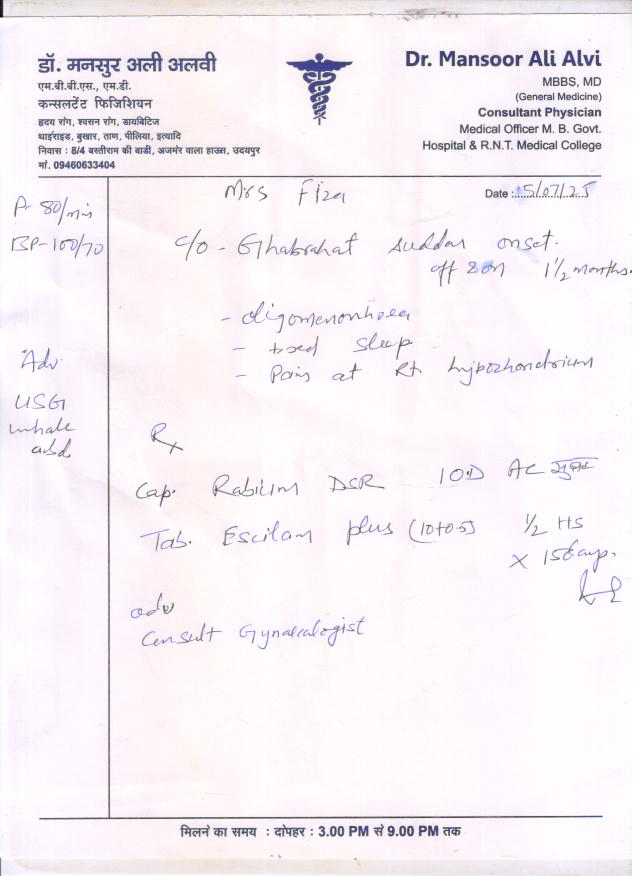 डॉ. मनसुर अली अलवी
एम.बी.बी.एस., एम.डी.
कन्सलटेंट फिजिशियन
हृदय रोग, श्वसन रोग, डायबिटिज
थाईराइड, बुखार, ताण, पीलिया, इत्यादि
निवास : 8/4 बस्तीराम की बाडी, अजमेर वाला हाऊस, उदयपुर
मो. 09460633404
Dr. Mansoor Ali Alvi
MBBS, MD
(General Medicine)
Consultant Physician
Medical Officer M. B. Govt.
Hospital & R.N.T. Medical College
Mrs Fiza
Date : 15/07/25
P- 80/min
BP-100/70
c/o - Ghabrahat sudden onset.
off & on 1½ months.
- oligomenorrhoea
- sleep
- Pain at Rt hypochondrium
Adv
USG
whole
abd.
Rx
Cap. Rabium DSR 10D AC सुबह
Tab. Escilam plus (10+0.5) ½ HS
x 15days.
adv
Consult Gynaecologist
मिलने का समय : दोपहर : 3.00 PM से 9.00 PM तक